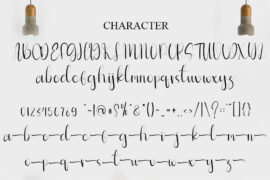 CHARACTER
ABCDEFGHIJKLMNOPQRSTUVWXYZ
abcdefghijklmnopqrstuvwxyz
0123456789
a-b-c-d-e-f-g-h-i-j-k-l-m-n-
o-p-q-r-s-t-u-v-w-x-y-z-